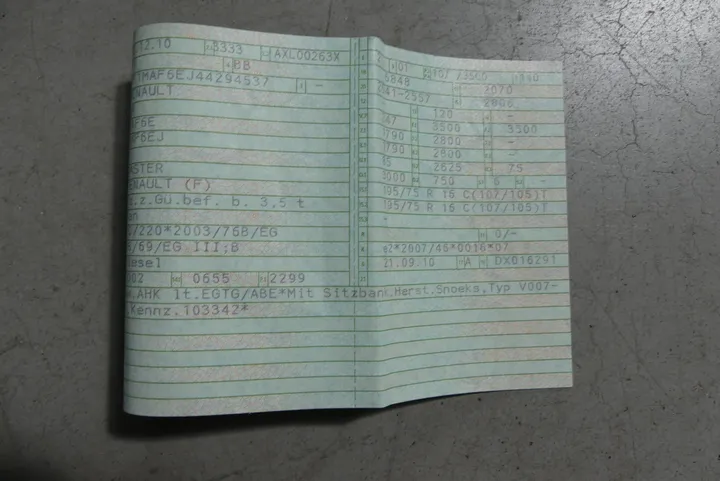 12.10 3333 AXL00263X
BB
MAF6EJ44294537 -
NAULT
F6E
F6EJ
STER
NAULT (F)
t.z.Gü.bef. b. 3,5 t
en
/220*2003/76B/EG
/69/EG III;B
esel
002 0655 2299
.AHK lt.EGTG/ABE*Mit Sitzbank,Herst.Snoeks,Typ V007-
.Kennz.103342*
01 107 /3500 140
6848 2070
2557
120 -
3500 3500
1790 2800 -
1790 2800 -
2625 75
3000 750 6 -
195/75 R 16 C(107/105)T
195/75 R 16 C(107/105)T
-
0/-
e2*2007/46*0016*07
21.09.10 A DX016291